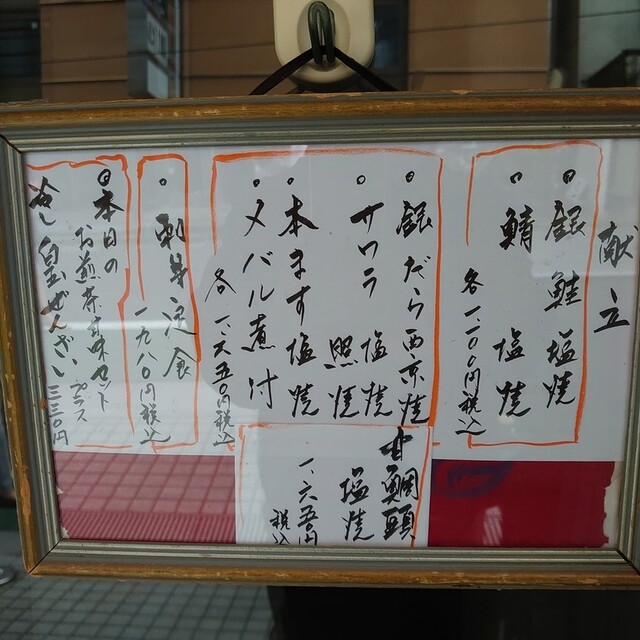 献立
◎銀鮭塩焼
○鯖 塩焼
各一、一〇〇円税込
◎銀だら西京焼
○サワラ 塩焼
照焼
○本ます塩焼
○メバル煮付
各一、六五〇円税込
甘鯛頭
塩焼
一、六五〇円
税込
○刺身定食
一九八〇円税込
◎本日の
お煎茶甘味セット
プラス
冷し白玉ぜんざい 三三〇円